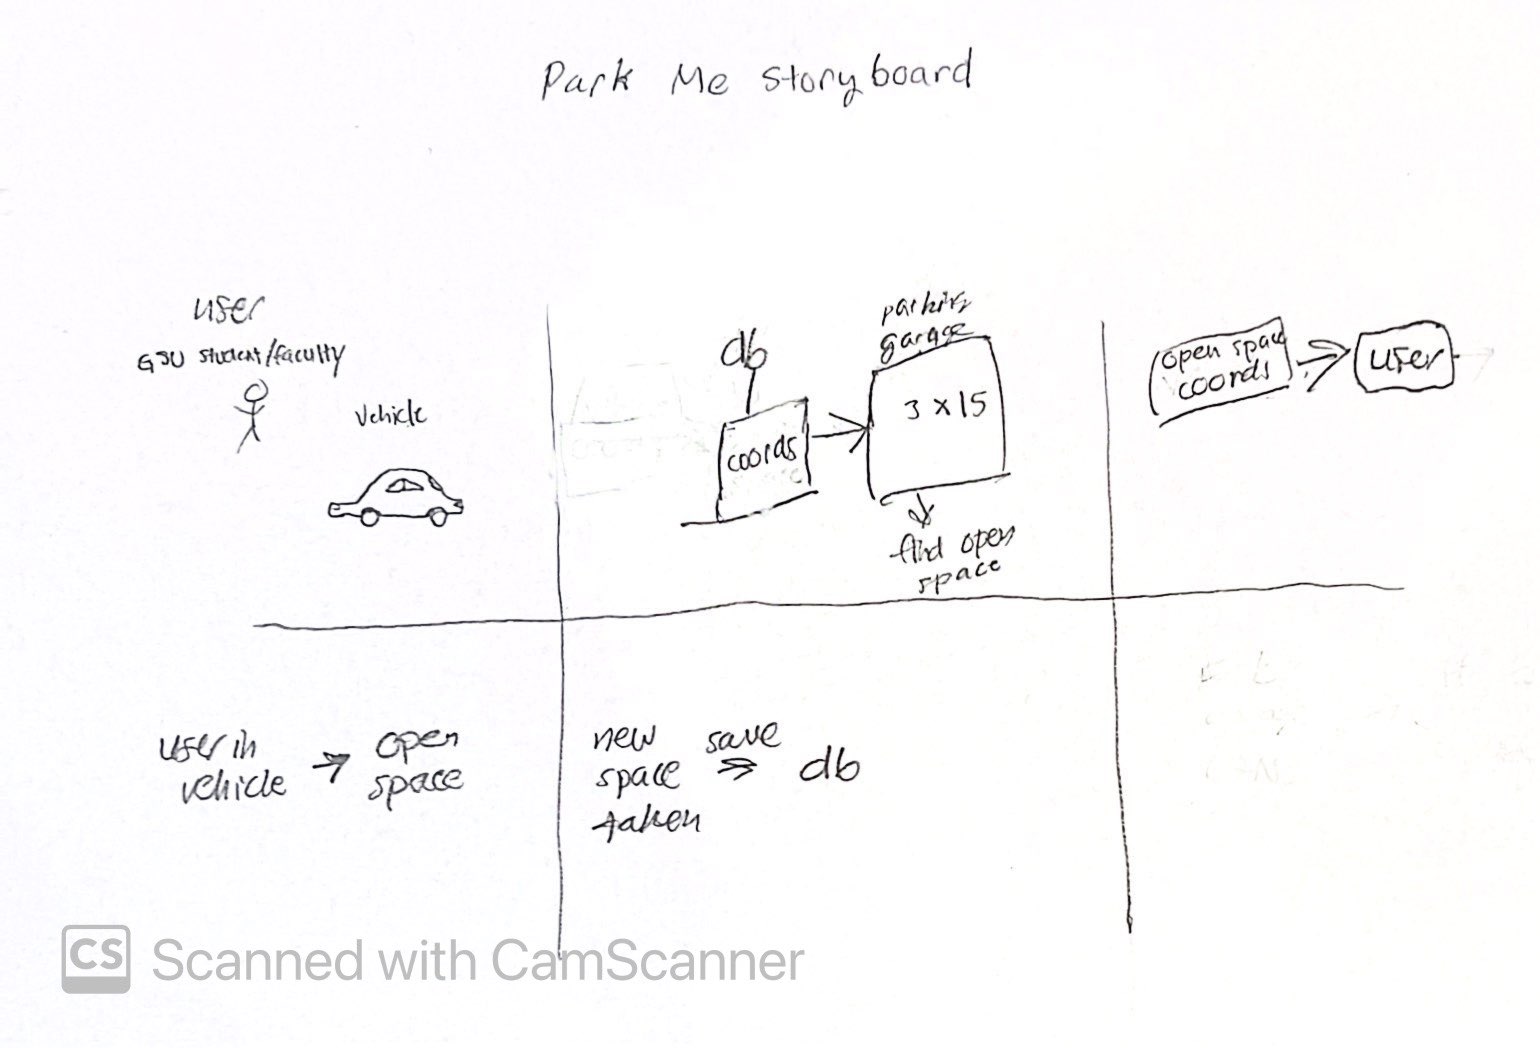 Park Me Storyboard
user
GSU student/faculty
vehicle
db
coords
parking
garage
3 x 15
find open
space
open space
coords
user
user in
vehicle
open
space
new
space
taken
save
db
CS Scanned with CamScanner